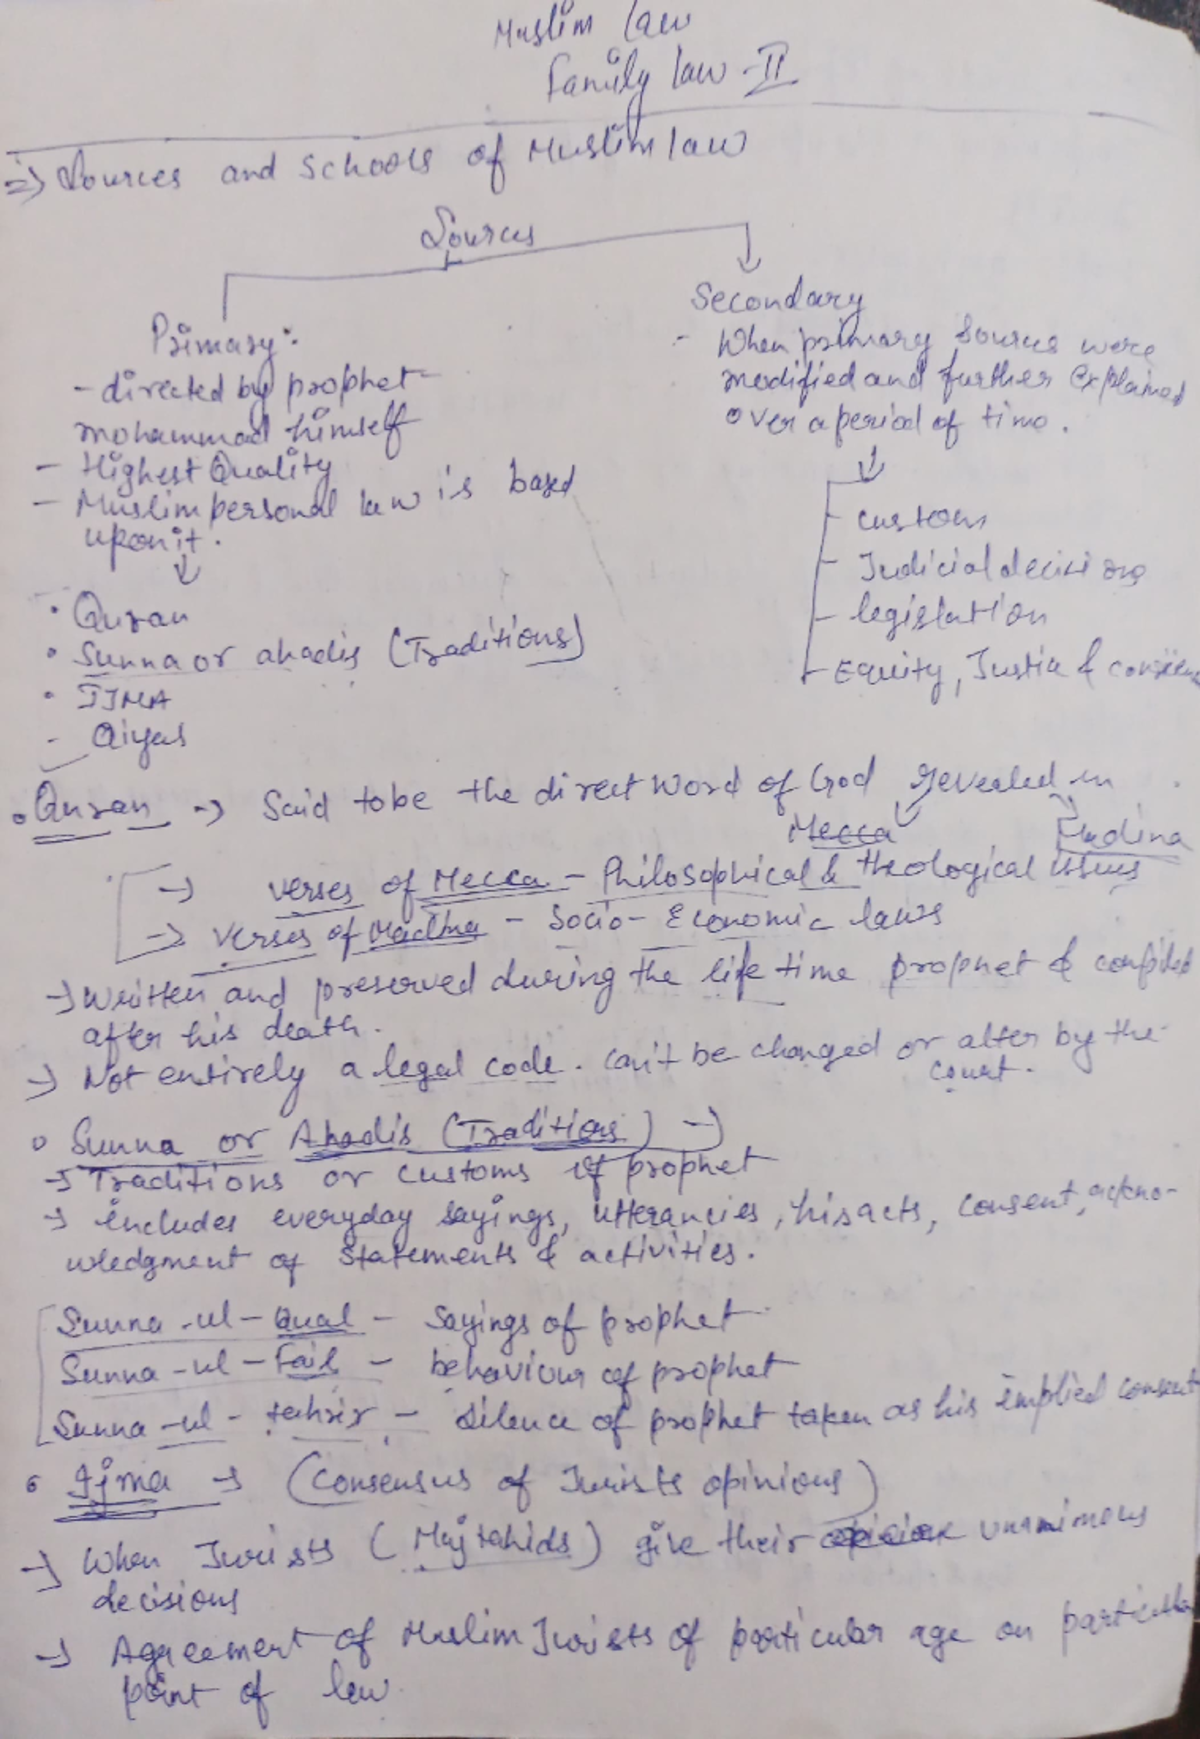 Muslim law
Family law - II
=> Sources and Schools of Muslim law
Sources
Primary:
- directed by prophet
mohammad himself
- Highest Quality
- Muslim personal law is based
upon it.
• Quran
• Sunna or ahadis (Traditions)
• IJMA
- Qiyas
Secondary
- When primary sources were
modified and further explained
over a period of time.
- custom
- Judicial decisions
- legislation
- Equity, Justice &
• Quran -> Said to be the direct word of God revealed in
Mecca Madina
-> verses of Mecca - Philosophical & theological issues
-> verses of Madina - Socio-Economic laws
-> Written and preserved during the life time prophet & compiled
after his death.
-> Not entirely a legal code. can't be changed or alter by the
court.
• Sunna or Ahadis (Traditions) ->
-> Traditions or customs of prophet
-> includes everyday sayings, utterancies, his acts, consent, ackno-
wledgment of statements & activities.
Sunna -ul- Qual - Sayings of prophet
Sunna -ul- Fail - behaviour of prophet
Sunna -ul- tahrir - silence of prophet taken as his implied consent
• Ijma -> (consensus of Jurists opinions)
-> When Jurists (Mujtahids) give their unanimous
decisions
-> Agreement of Muslim Jurists of particular age on particular
point of law